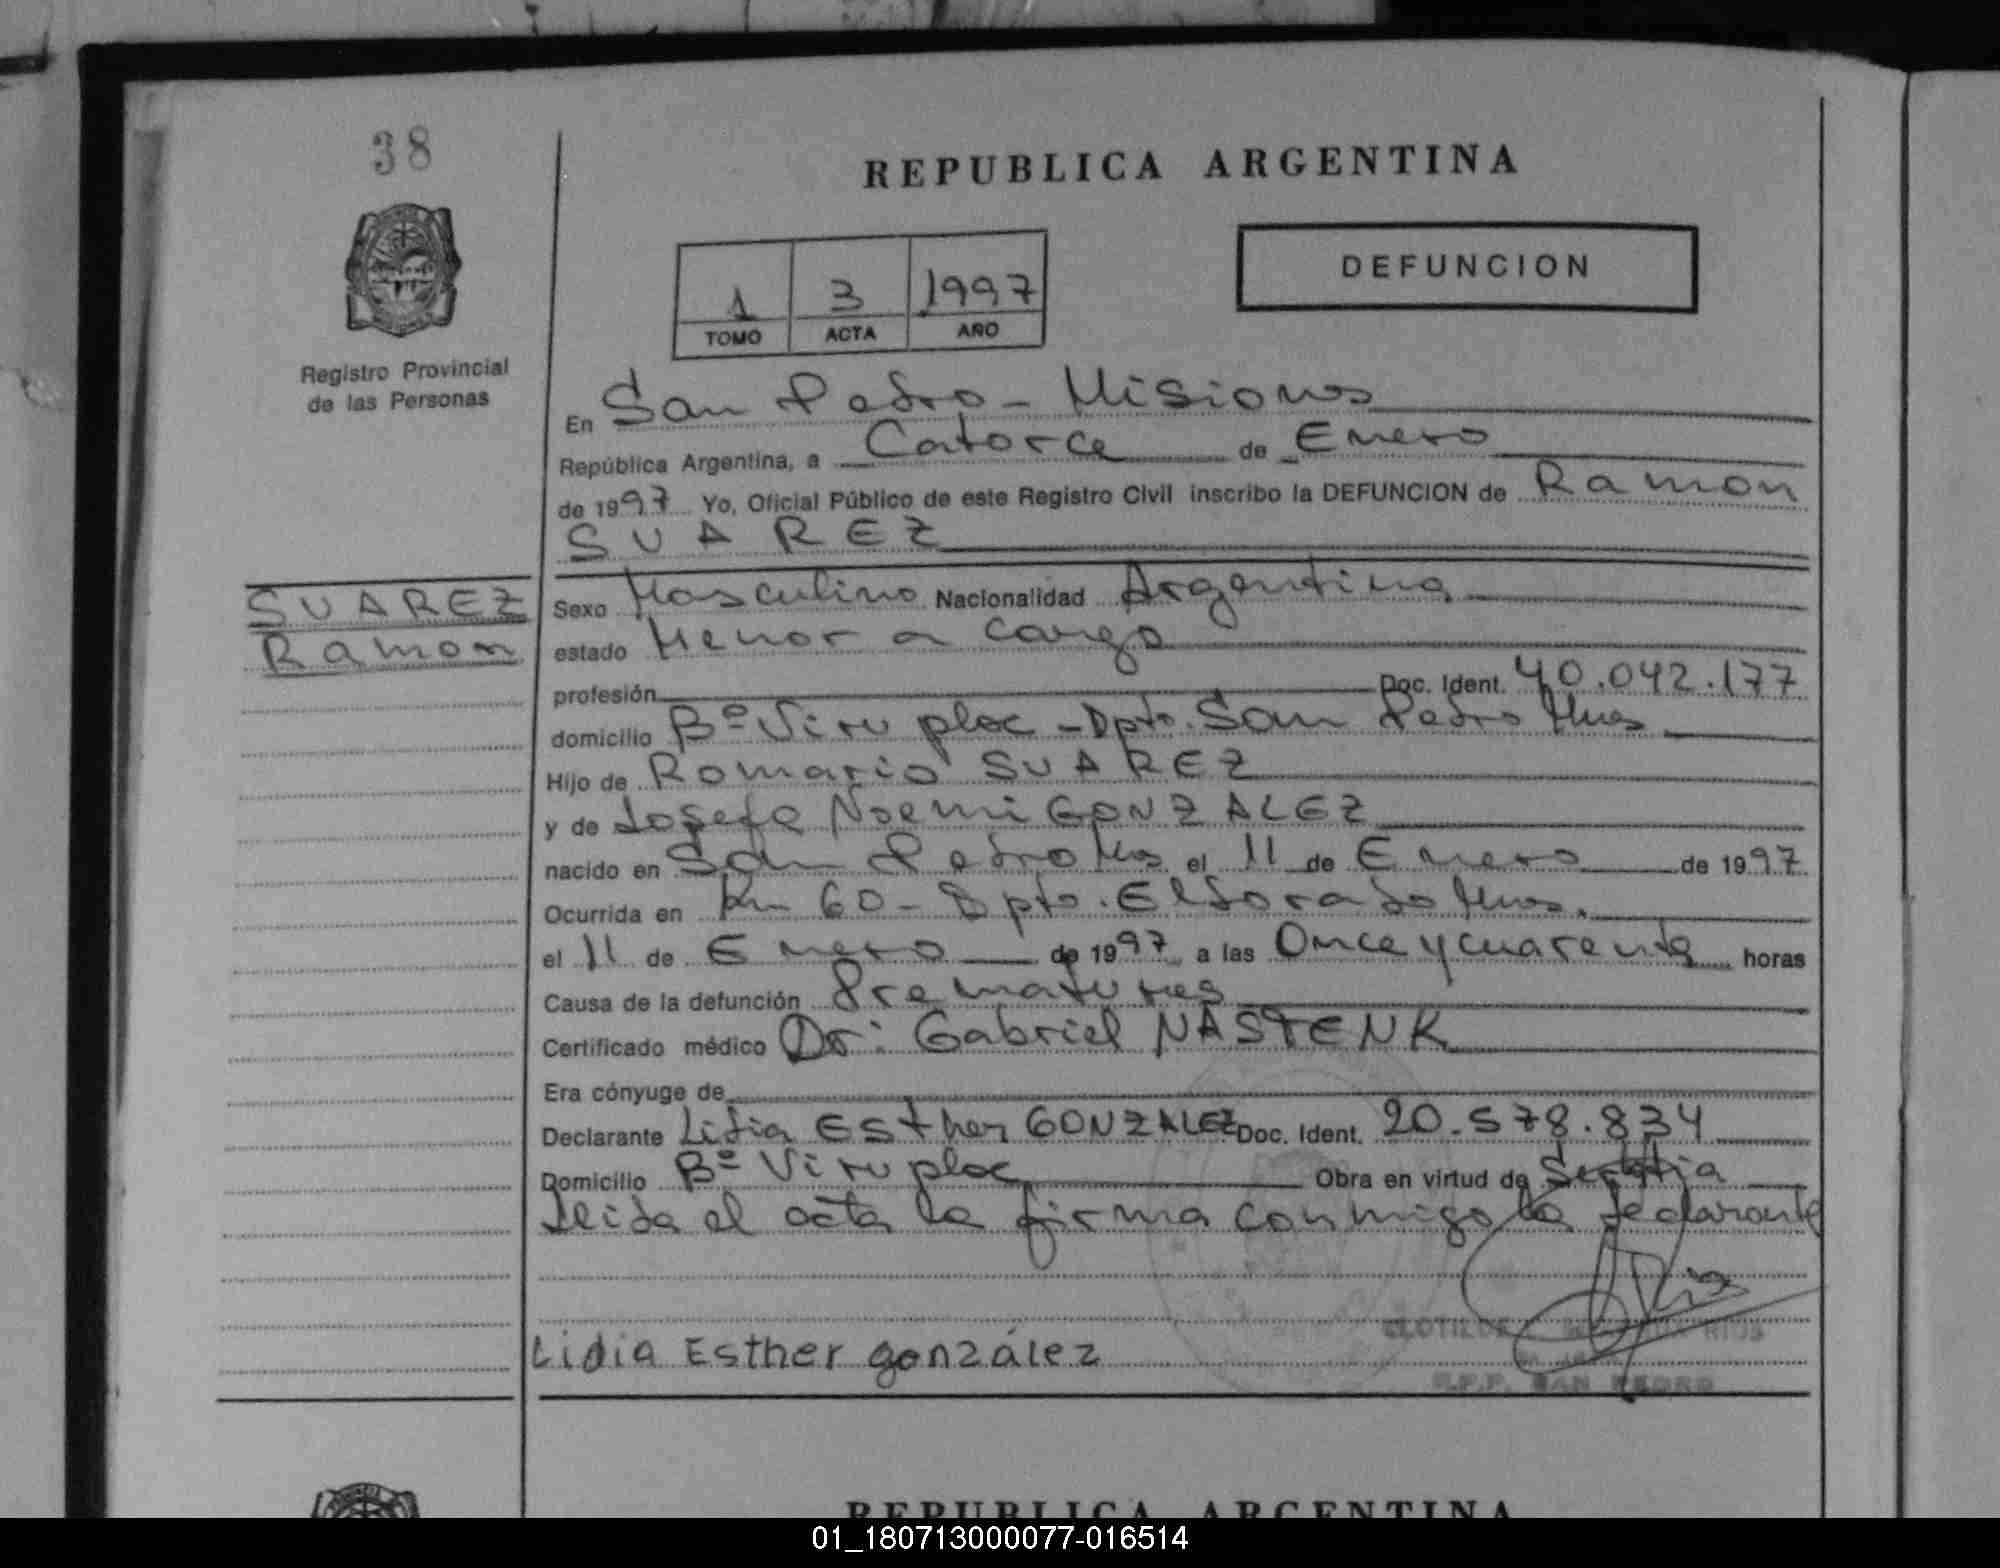 38
REPUBLICA ARGENTINA
DEFUNCION
1 3 1997
TOMO ACTA AÑO
Registro Provincial
de las Personas
En San Pedro - Misiones
República Argentina, a Catorce de Enero
de 1997 Yo, Oficial Público de este Registro Civil inscribo la DEFUNCION de Ramon
SUAREZ
SUAREZ
Ramon
Sexo Masculino Nacionalidad Argentina
estado Menor a cargo
profesión Doc. Ident. 40.042.177
domicilio Bº Viru ploc - Dpto. San Pedro Mnes
Hijo de Romario SUAREZ
y de Josefa Noemi GONZALEZ
nacido en San Pedro Mns el 11 de Enero de 1997
Ocurrida en Km 60 - Dpto. Eldorado Mnes.
el 11 de Enero de 1997 a las Once y cuarenta horas
Causa de la defunción
Certificado médico Dr: Gabriel NASTENK
Era cónyuge de
Declarante Lidia Esther GONZALEZ Doc. Ident. 20.578.834
Domicilio Bº Viru ploc Obra en virtud de
Leida el acta la firma conmigo la declarante
Lidia Esther gonzález
CLOTILDE RIOS
R.P.P. SAN PEDRO
REPUBLICA ARGENTINA
01_180713000077-016514